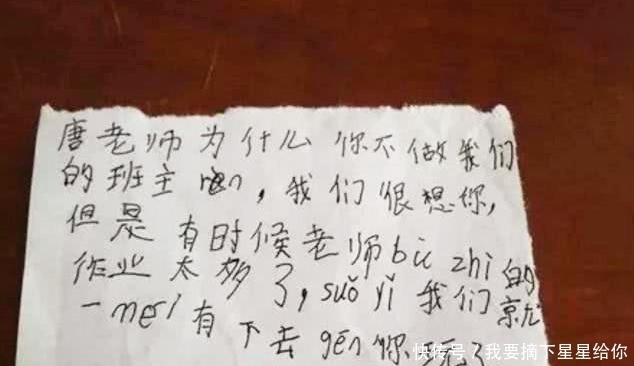 唐老师为什么你不做我们
的班主rèn，我们很想你，
但是有时候老师bù zhì的
作业太多了，suǒ yǐ我们就
一mei有下去gēn你玩了
快传号/我要摘下星星给你